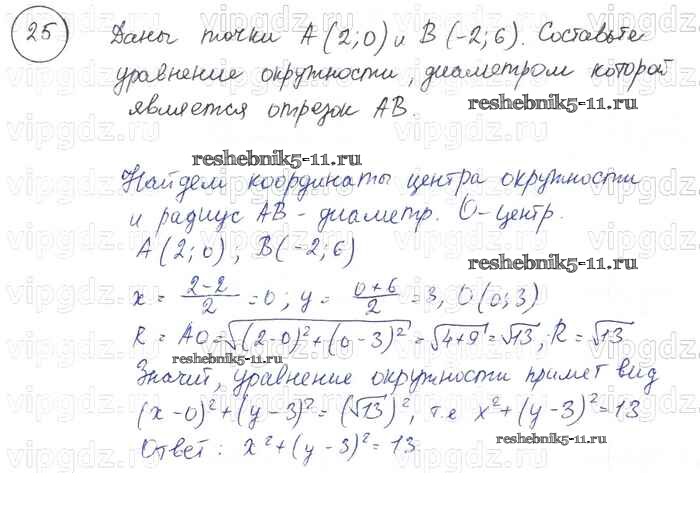 25 Даны точки A(2;0) и B(-2;6). Составьте
уравнение окружности, диаметром которой
является отрезок AB.
reshebnik5-11.ru
reshebnik5-11.ru
Найдем координаты центра окружности
и радиус AB - диаметр. O-центр.
A(2;0), B(-2;6)
reshebnik5-11.ru
x = (2-2)/2 = 0; y = (0+6)/2 = 3, O(0;3)
R = AO = √((2-0)²+(0-3)²) = √(4+9) = √13, R = √13
reshebnik5-11.ru
Значит, уравнение окружности примет вид
(x-0)²+(y-3)²=(√13)², т.е x²+(y-3)²=13
reshebnik5-11.ru
Ответ: x²+(y-3)²=13
vipgdz.ru